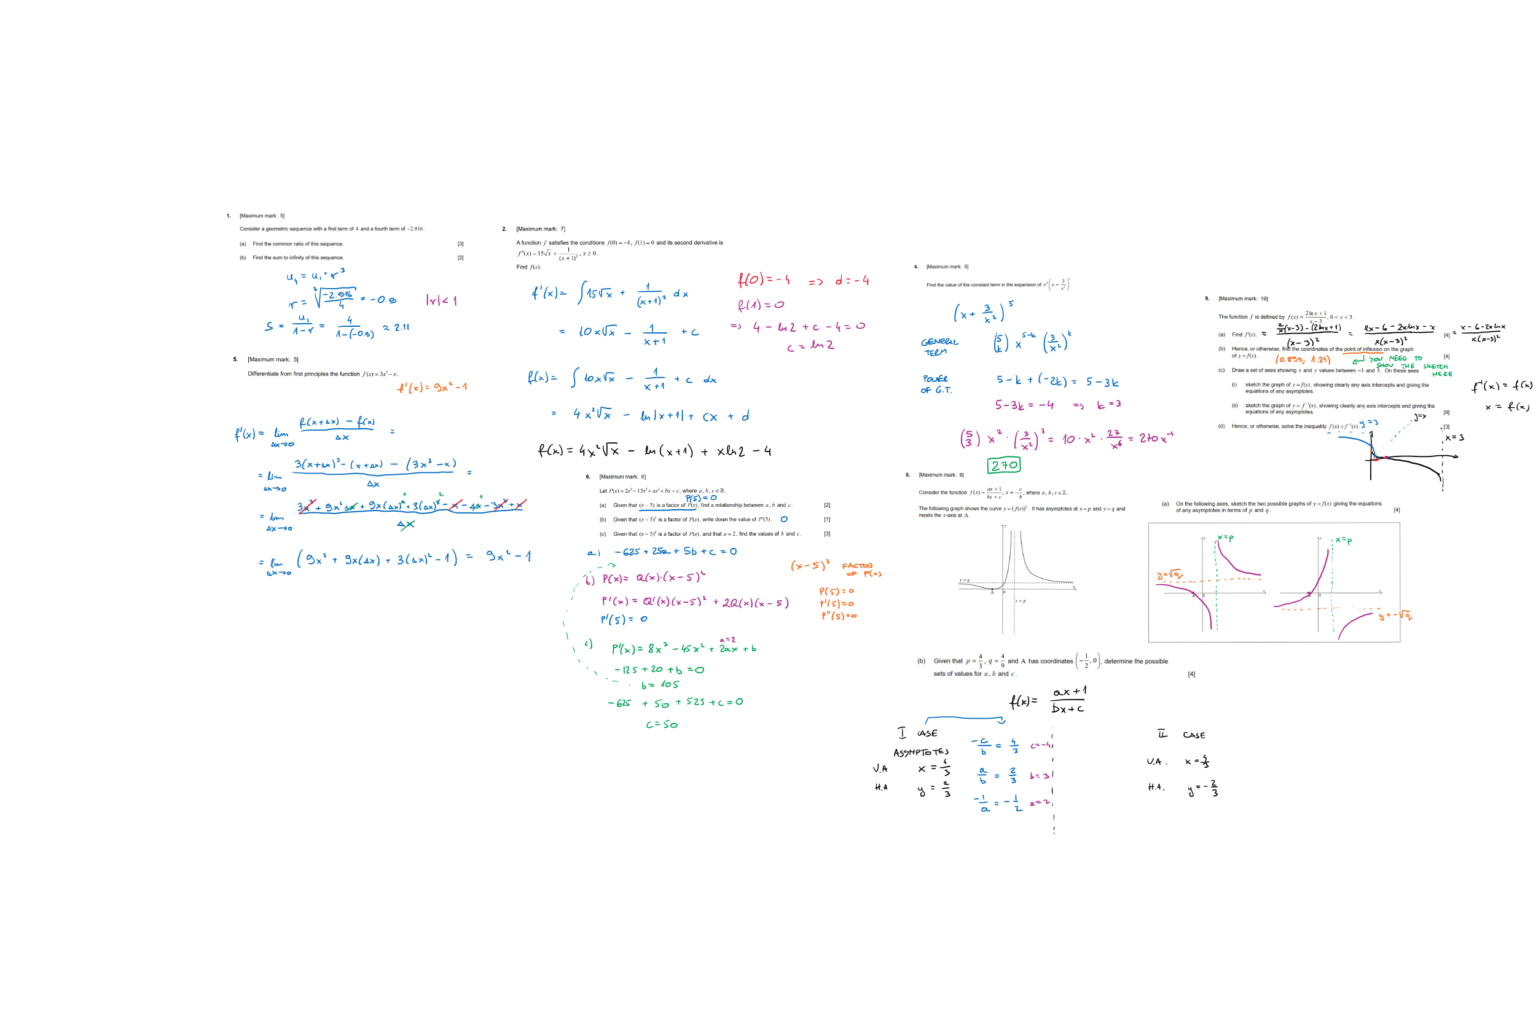 1. [Maximum mark: 5]
Consider a geometric sequence with a first term of 4 and a fourth term of −2.916.
(a) Find the common ratio of this sequence. [3]
(b) Find the sum to infinity of this sequence. [2]
u₄ = u₁ · r³
r = ∛(-2.916/4) = -0.9 |r| < 1
S = u₁/(1-r) = 4/(1-(-0.9)) ≈ 2.11
5. [Maximum mark: 5]
Differentiate from first principles the function f(x) = 3x³ − x.
f'(x) = 9x² - 1
f'(x) = lim Δx→0 (f(x+Δx) - f(x))/Δx =
= lim Δx→0 (3(x+Δx)³ - (x+Δx) - (3x³ - x))/Δx =
= lim Δx→0 (3x³ + 9x²Δx + 9x(Δx)² + 3(Δx)³ - x - Δx - 3x³ + x)/Δx
= lim Δx→0 (9x² + 9x(Δx) + 3(Δx)² - 1) = 9x² - 1
2. [Maximum mark: 7]
A function f satisfies the conditions f(0) = −4, f(1) = 0 and its second derivative is
f″(x) = 15√x + 1/(x+1)², x ≥ 0.
Find f(x).
f'(x) = ∫ 15√x + 1/(x+1)² dx
= 10x√x - 1/(x+1) + c
f(x) = ∫ 10x√x - 1/(x+1) + c dx
= 4x²√x - ln|x+1| + cx + d
f(x) = 4x²√x - ln(x+1) + xln2 - 4
f(0) = -4 => d = -4
f(1) = 0
=> 4 - ln2 + c - 4 = 0
c = ln2
6. [Maximum mark: 6]
Let P(x) = 2x⁴ − 15x³ + ax² + bx + c, where a, b, c ∈ ℝ.
P(5) = 0
(a) Given that (x − 5) is a factor of P(x), find a relationship between a, b and c. [2]
(b) Given that (x − 5)² is a factor of P(x), write down the value of P′(5). 0 [1]
(c) Given that (x − 5)² is a factor of P(x), and that a = 2, find the values of b and c. [3]
a) -625 + 25a + 5b + c = 0
b) P(x) = Q(x)·(x-5)²
P'(x) = Q'(x)(x-5)² + 2Q(x)(x-5)
P'(5) = 0
(x-5)³ FACTOR OF P(x)
P(5) = 0
P'(5) = 0
P''(5) = 0
a=2
c) P'(x) = 8x³ - 45x² + 2ax + b
-125 + 20 + b = 0
b = 105
-625 + 50 + 525 + c = 0
c = 50
4. [Maximum mark: 5]
Find the value of the constant term in the expansion of x⁴(x + 3/x²)⁵.
(x + 3/x²)⁵
GENERAL TERM (5 k) x^(5-k) (3/x²)^k
POWER OF G.T. 5-k + (-2k) = 5-3k
5-3k = -4 => k = 3
(5 3) x² · (3/x²)³ = 10 · x² · 27/x⁶ = 270x⁻⁴
270
8. [Maximum mark: 8]
Consider the function f(x) = (ax+1)/(bx+c), x ≠ −c/b, where a, b, c ∈ ℤ.
The following graph shows the curve y = (f(x))². It has asymptotes at x = p and y = q and
meets the x-axis at A.
y
y = q
A
0
x
x = p
(a) On the following axes, sketch the two possible graphs of y = f(x) giving the equations
of any asymptotes in terms of p and q. [4]
x=p
y=√q
x=p
y=-√q
(b) Given that p = 4/3, q = 4/9 and A has coordinates (−1/2, 0), determine the possible
sets of values for a, b and c. [4]
f(x) = (ax+1)/(bx+c)
I CASE
ASYMPTOTES
V.A x = 4/3
H.A y = 2/3
-c/b = 4/3 c=-4
a/b = 2/3 b=3
-1/a = -1/2 a=2
II CASE
V.A. x = 4/3
H.A. y = -2/3
9. [Maximum mark: 19]
The function f is defined by f(x) = (2 ln x + 1)/(x − 3), 0 < x < 3.
(a) Find f′(x). = (2/x(x-3) - (2lnx+1))/(x-3)² = (2x - 6 - 2xlnx - x)/(x(x-3)²) [4] = (x - 6 - 2xlnx)/(x(x-3)²)
(b) Hence, or otherwise, find the coordinates of the point of inflexion on the graph
of y = f(x). (0.899, 1.24) [4]
YOU NEED TO SHOW THE SKETCH HERE
(c) Draw a set of axes showing x and y values between −3 and 3. On these axes
(i) sketch the graph of y = f(x), showing clearly any axis intercepts and giving the
equations of any asymptotes.
(ii) sketch the graph of y = f⁻¹(x), showing clearly any axis intercepts and giving the
equations of any asymptotes. [8]
(d) Hence, or otherwise, solve the inequality f(x) > f⁻¹(x). [3]
f⁻¹(x) = f(x)
x = f(x)
y=3
y=x
x=3